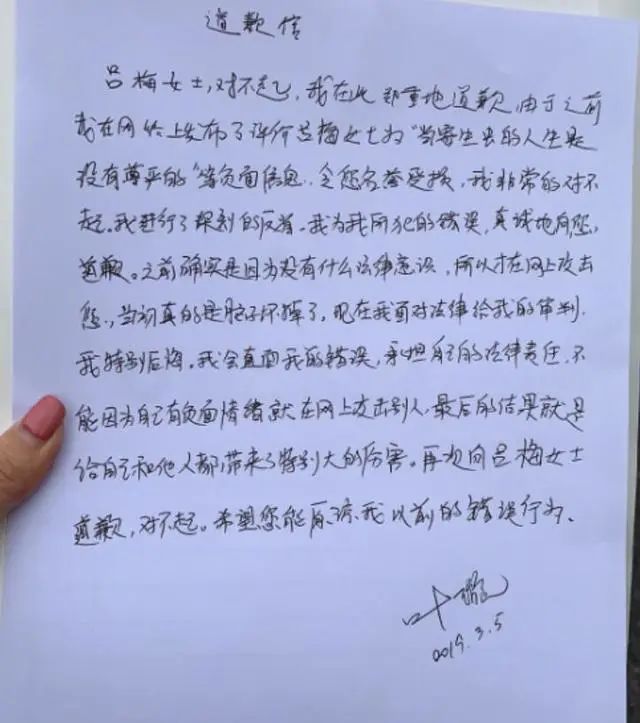 道歉信
吕梅女士,对不起,我在此郑重地道歉,由于之前
我在网络上发布了评价吕梅女士为“当寄生虫的人生是
没有尊严的”等负面信息,令您名誉受损,我非常的对不
起。我进行了深刻的反省,我为我所犯的错误,真诚地向您
道歉。之前确实是因为没有什么法律意识,所以才在网上攻击
您,当初真的是脑子坏掉了,现在我面对法律给我的审判.
我特别后悔。我会直面我的错误,承担自己的法律责任.不
能因为自己有负面情绪就在网上攻击别人,最后的结果就是
给自己和他人都带来了特别大的伤害。再次向吕梅女士
道歉,对不起。希望您能原谅我以前的错误行为.
叶璇
2019.3.5